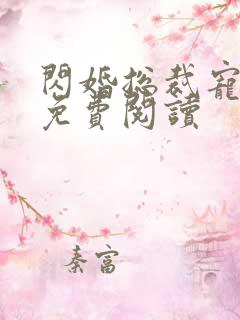 閃婚總裁寵
免費閱讀
秦富